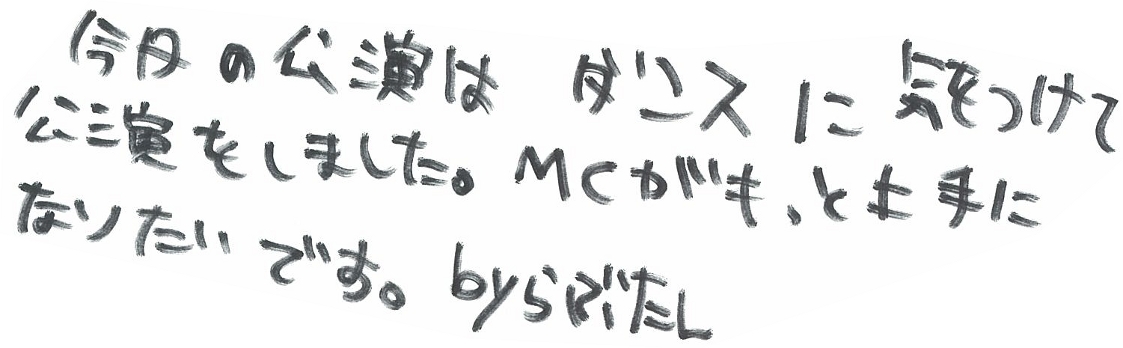 今日の公演は ダンスに気をつけて
公演をしました。MCがもっと上手に
なりたいです。byらぶたん